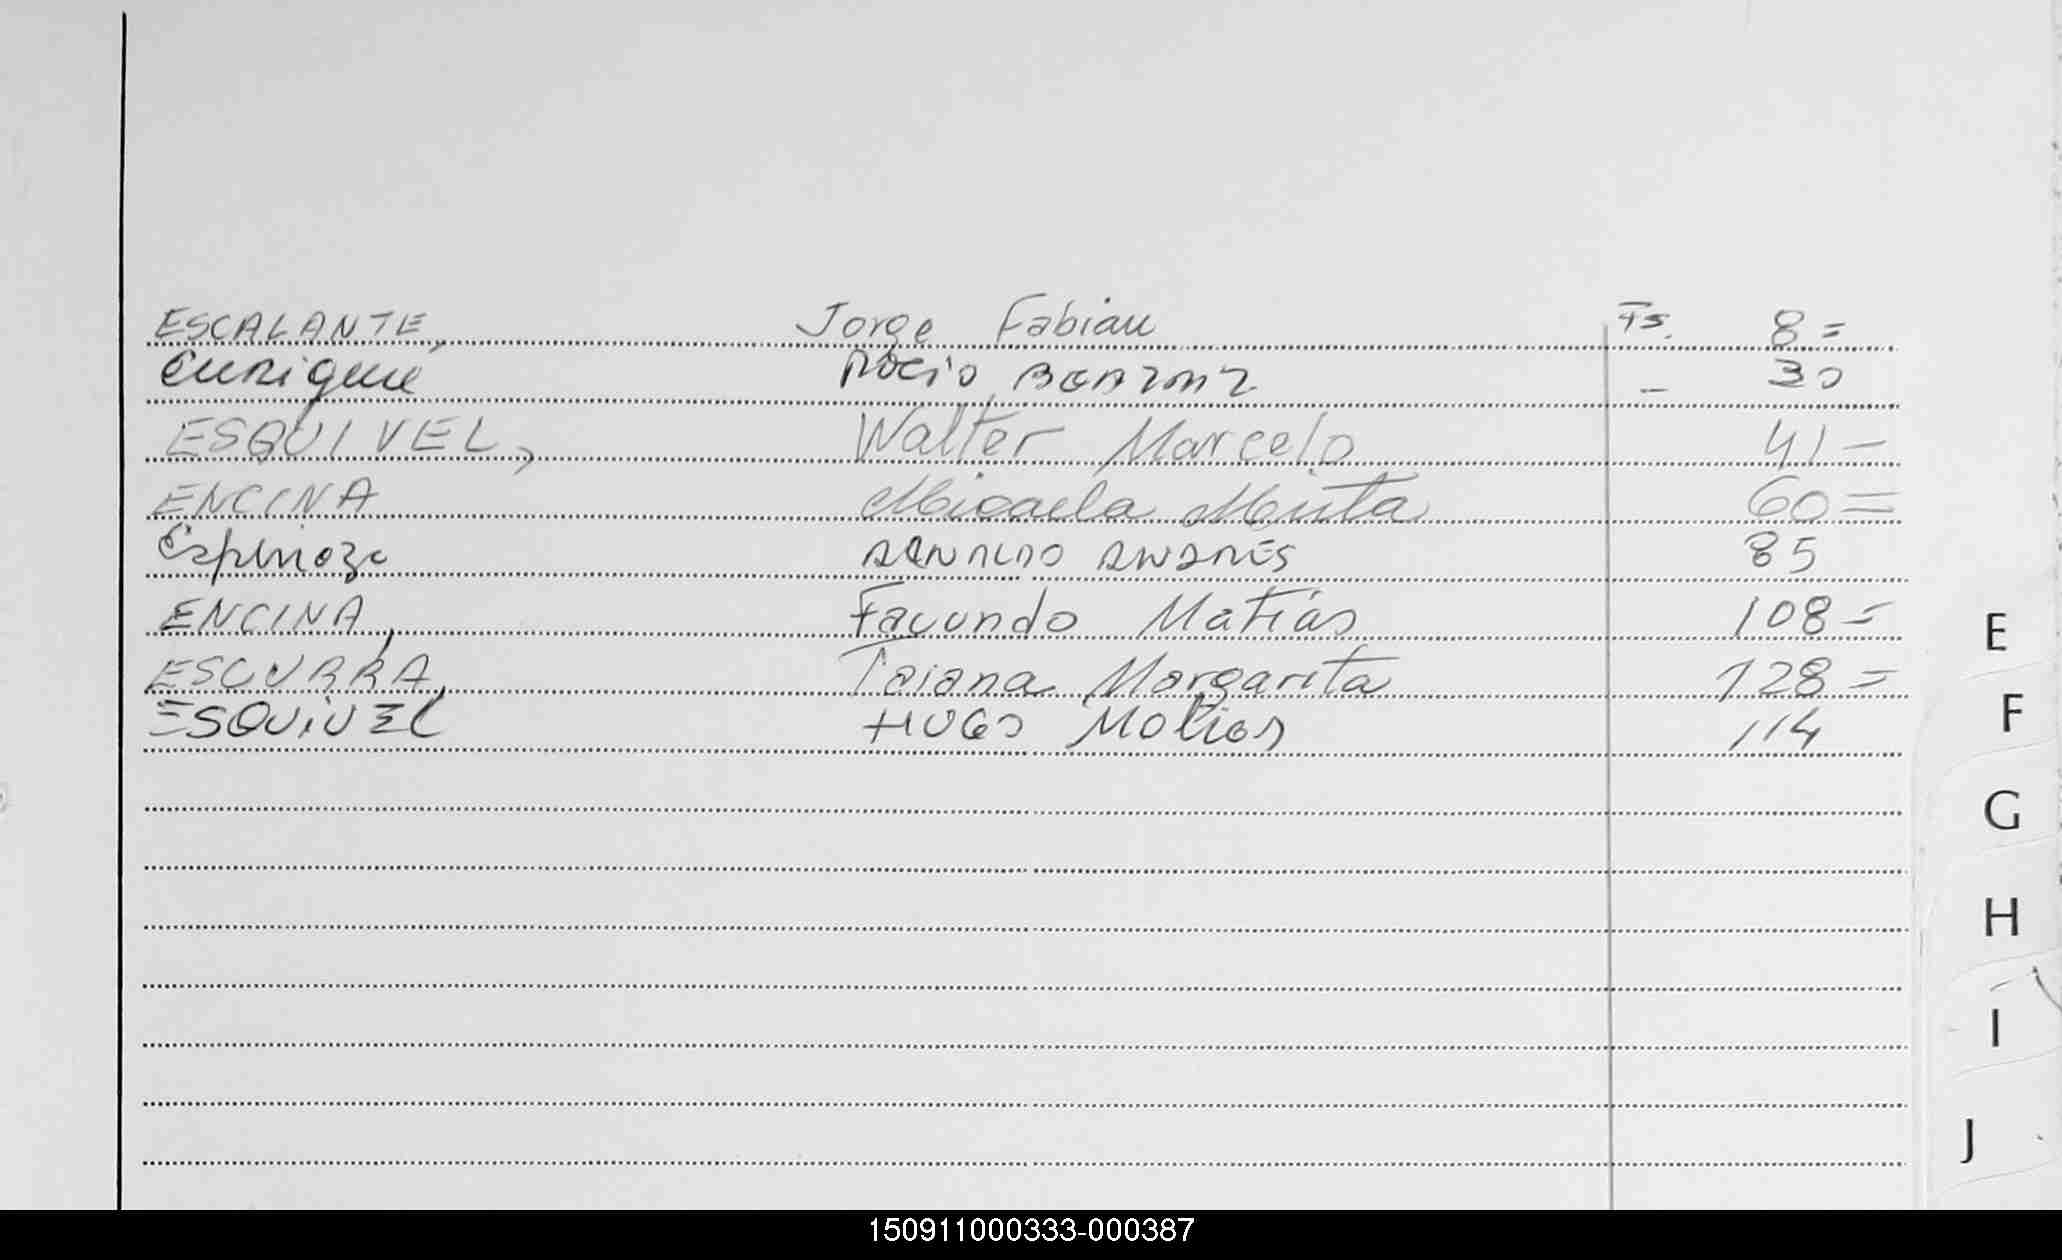 ESCALANTE, Jorge Fabian Fs. 8=
Enrique Rocio BEATRIZ - 30
ESQUIVEL, Walter Marcelo 41-
ENCINA Micaela Mirta 60=
Espinoza ARNALDO ANDRÉS 85
ENCINA, Facundo Matías 108=
E
ESCURRA, Taiana Margarita 128=
F
ESQUIVEL HUGO Matias 114
G
H
I
J
150911000333-000387